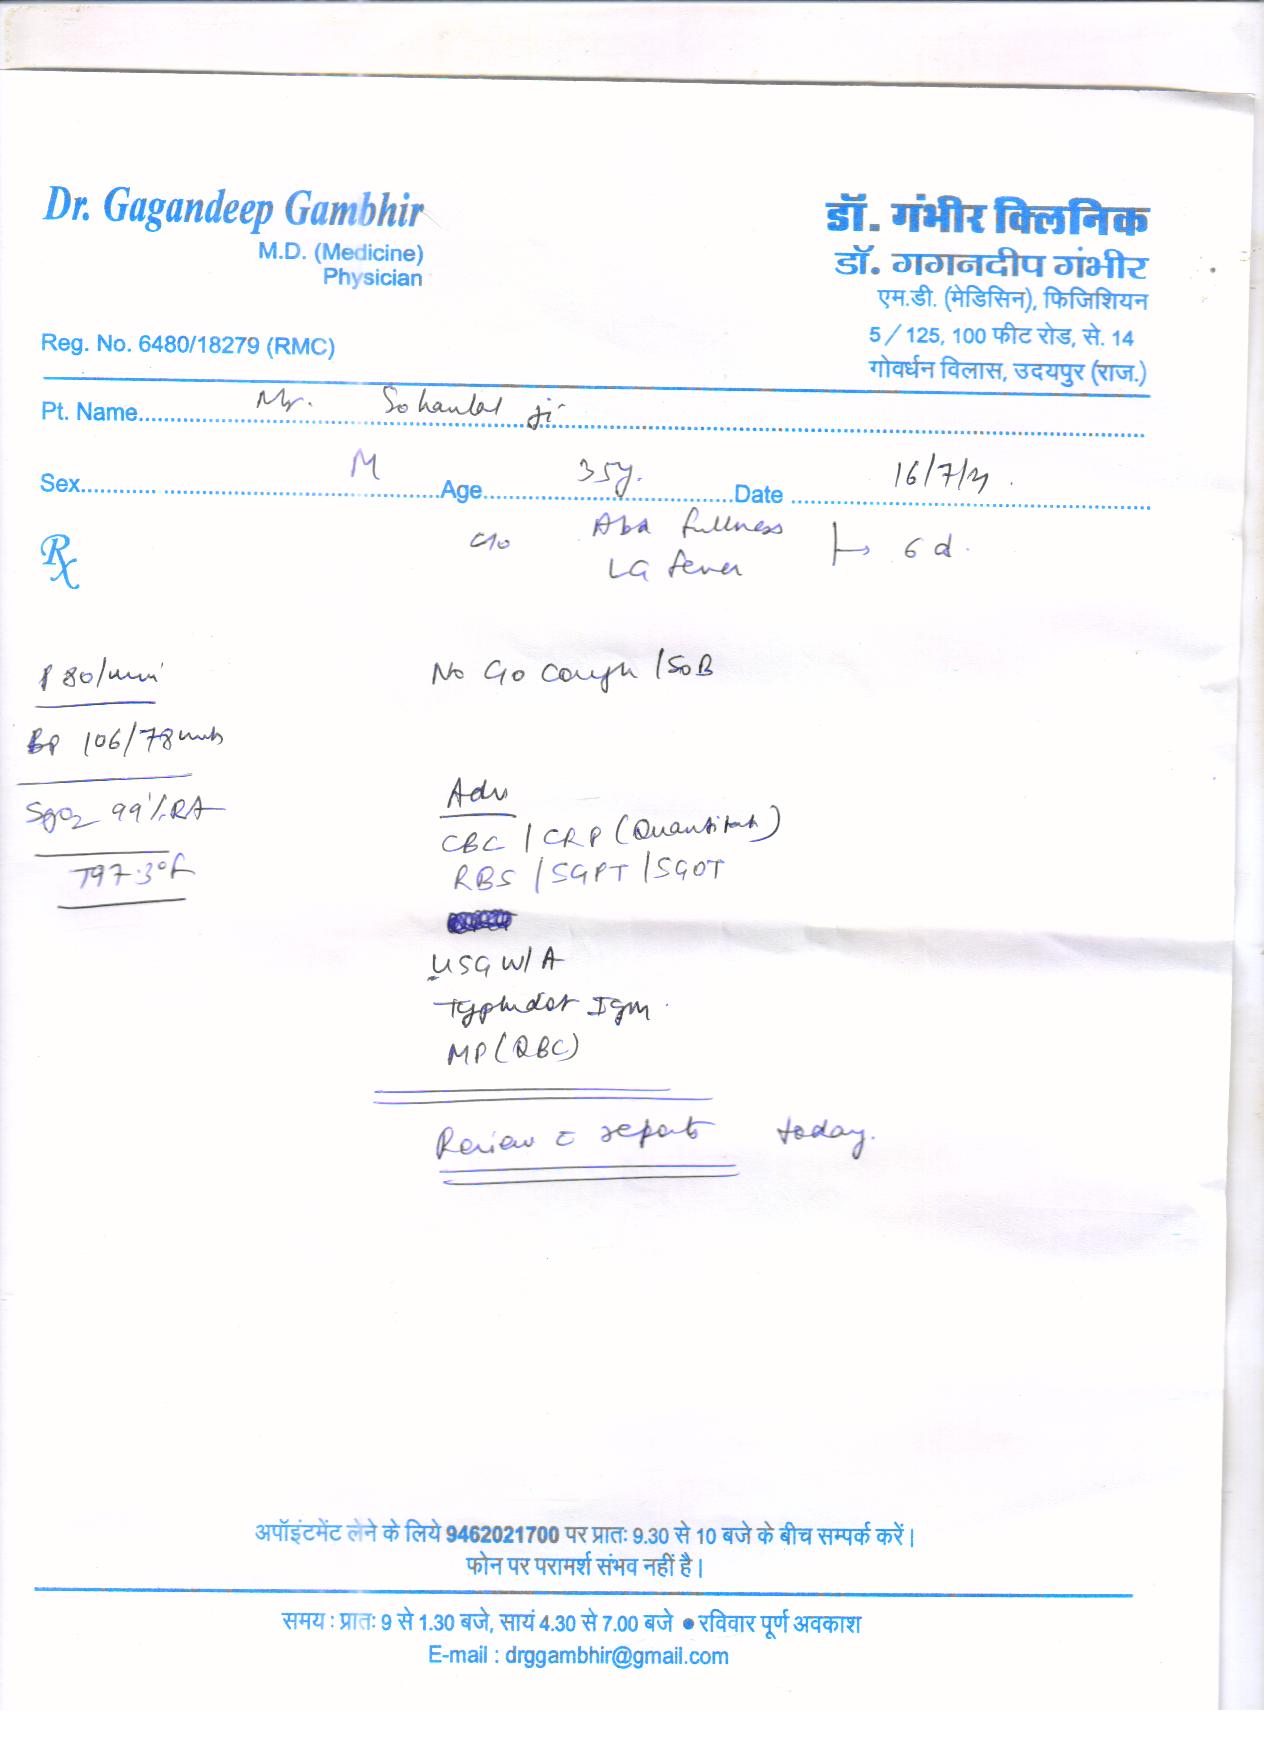 Dr. Gagandeep Gambhir
M.D. (Medicine)
Physician
Reg. No. 6480/18279 (RMC)
डॉ. गंभीर क्लिनिक
डॉ. गगनदीप गंभीर
एम.डी. (मेडिसिन), फिजिशियन
5/125, 100 फीट रोड, से. 14
गोवर्धन विलास, उदयपुर (राज.)
Pt. Name Mr. Sohanlal ji
Sex M Age 35y. Date 16/7/21.
Rx
c/o Abd fullness
LG fever → 6 d.
P 80/min
No c/o cough / SOB
BP 106/78 mmhg
SpO2 99% RA
T 97.3°F
Adv
CBC / CRP (Quantitat)
RBS / SGPT / SGOT
USG W/A
Typhidot Igm.
MP (QBC)
Review c reports today.
अपॉइंटमेंट लेने के लिये 9462021700 पर प्रातः 9.30 से 10 बजे के बीच सम्पर्क करें।
फोन पर परामर्श संभव नहीं है।
समय : प्रातः 9 से 1.30 बजे, सायं 4.30 से 7.00 बजे ● रविवार पूर्ण अवकाश
E-mail : drggambhir@gmail.com